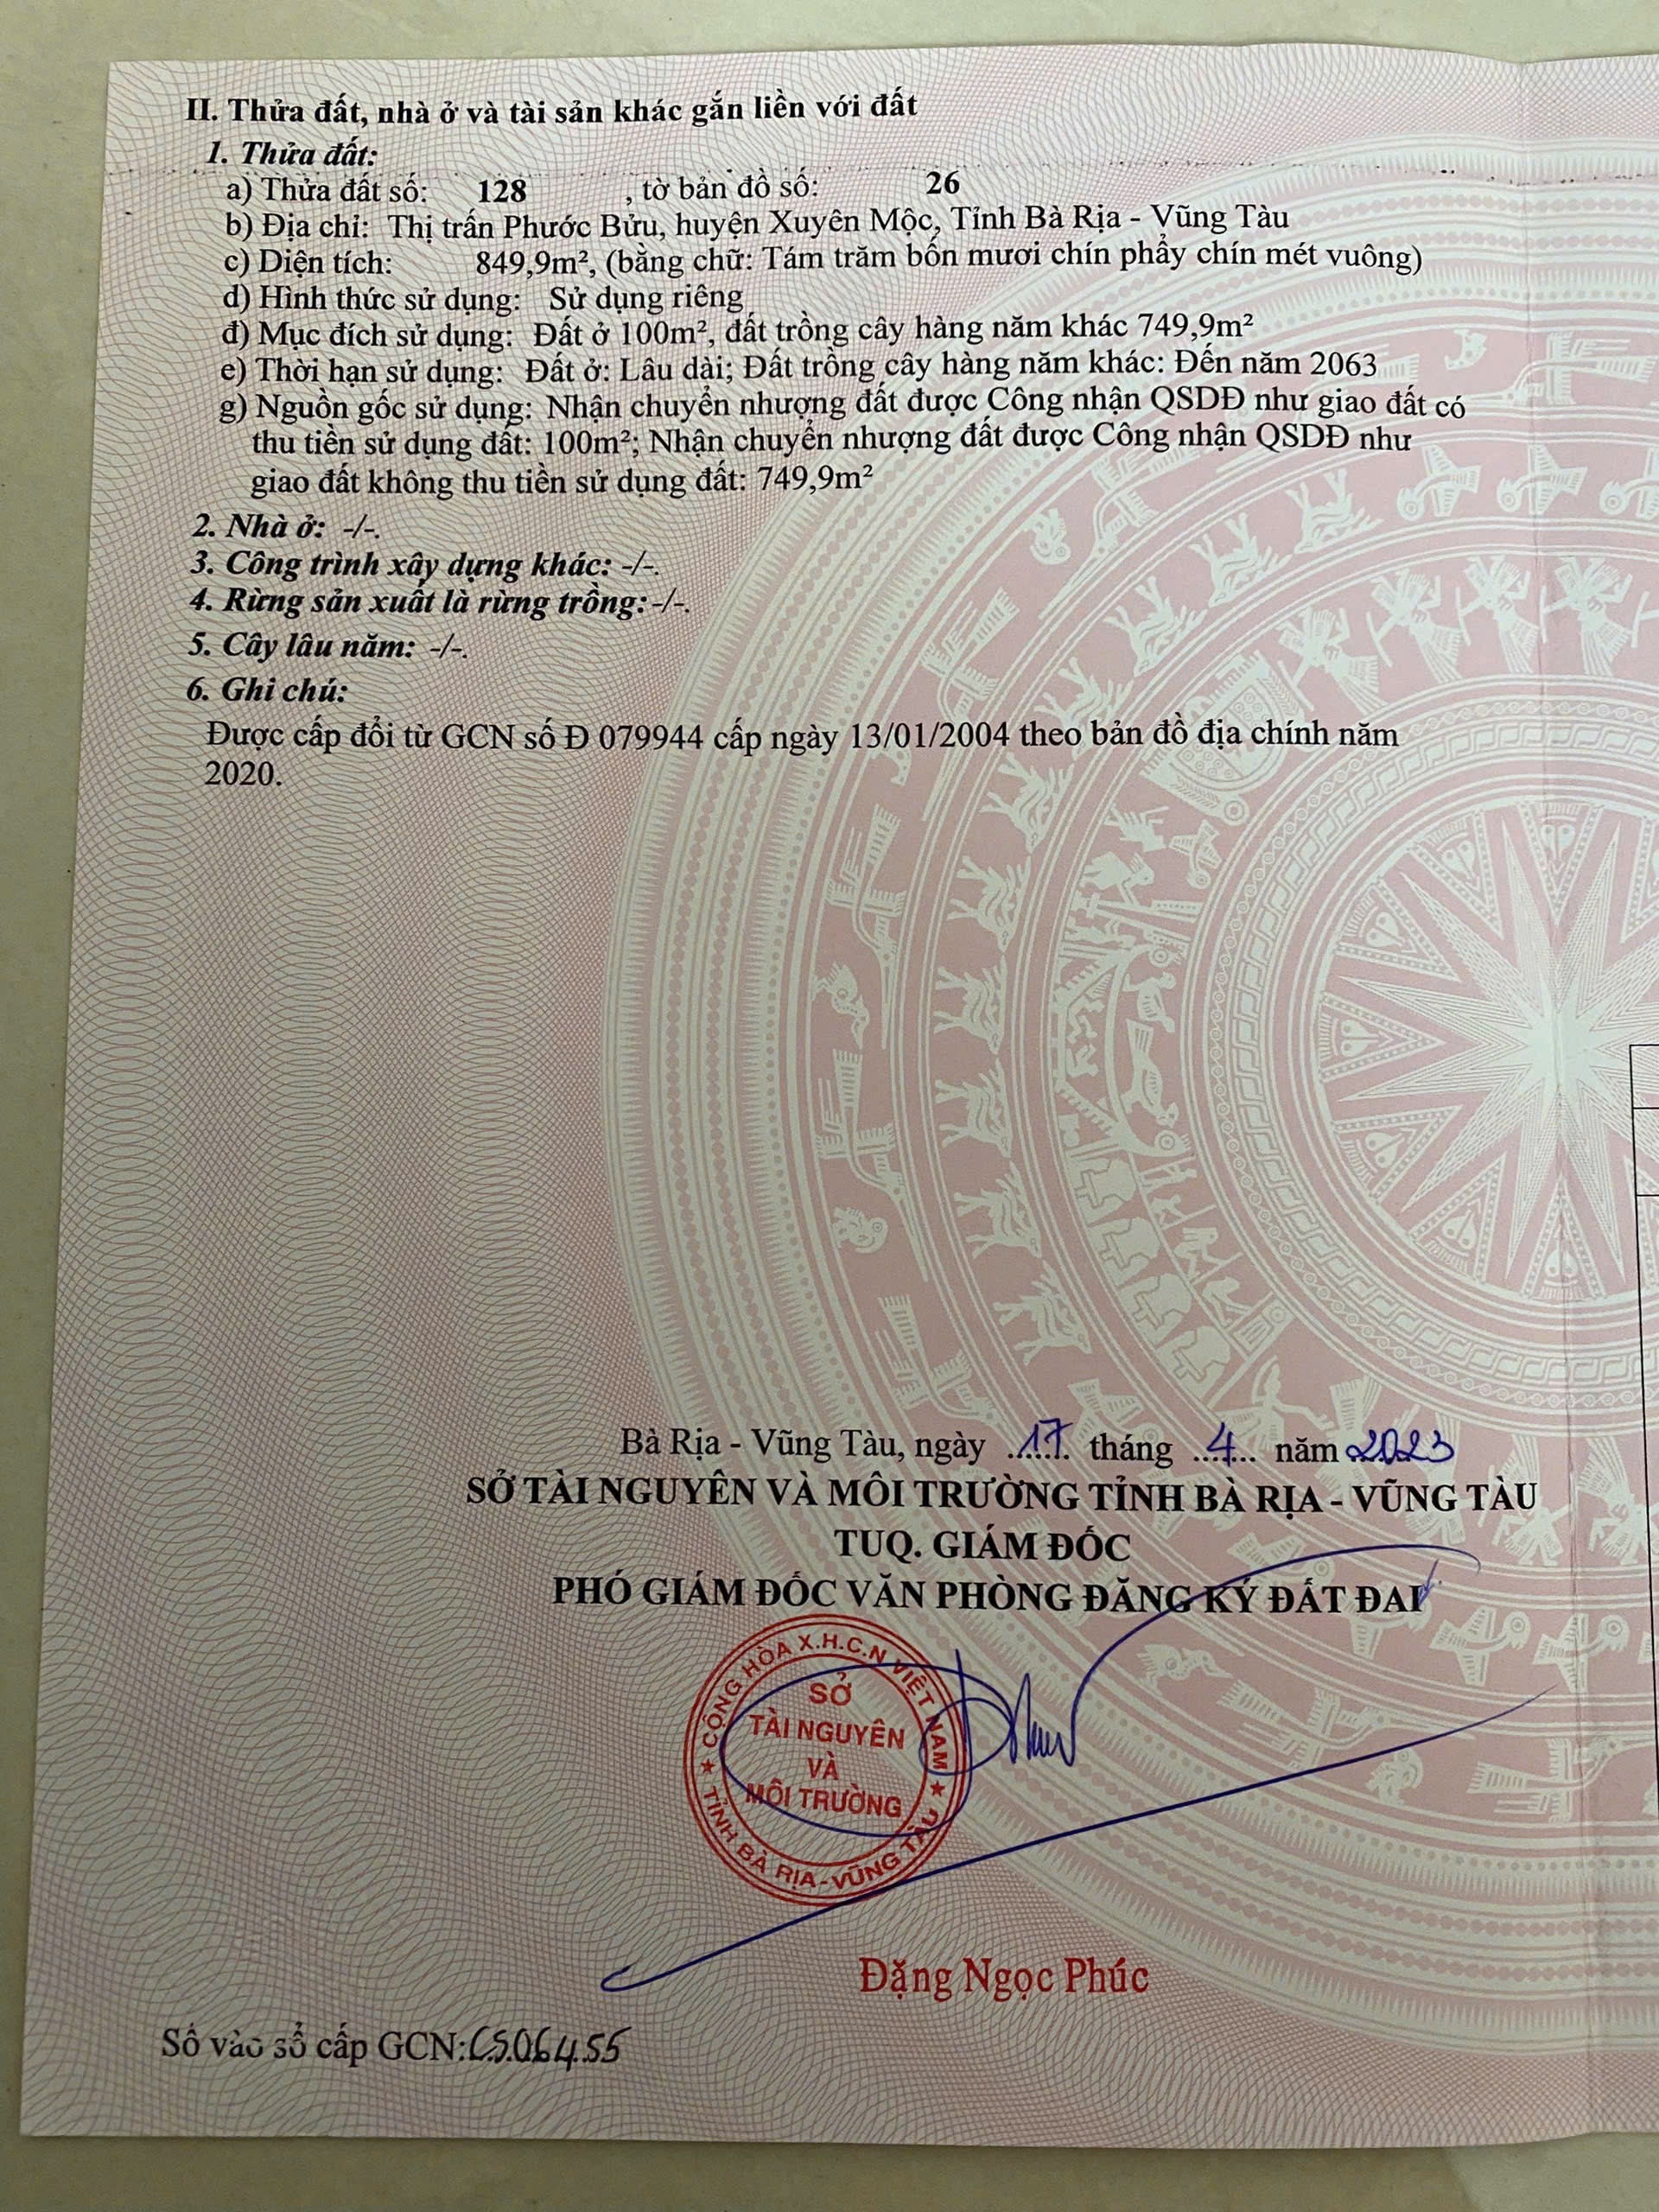 II. Thửa đất, nhà ở và tài sản khác gắn liền với đất
1. Thửa đất:
a) Thửa đất số: 128 , tờ bản đồ số: 26
b) Địa chỉ: Thị trấn Phước Bửu, huyện Xuyên Mộc, Tỉnh Bà Rịa - Vũng Tàu
c) Diện tích: 849,9m², (bằng chữ: Tám trăm bốn mươi chín phẩy chín mét vuông)
d) Hình thức sử dụng: Sử dụng riêng
đ) Mục đích sử dụng: Đất ở 100m², đất trồng cây hàng năm khác 749,9m²
e) Thời hạn sử dụng: Đất ở: Lâu dài; Đất trồng cây hàng năm khác: Đến năm 2063
g) Nguồn gốc sử dụng: Nhận chuyển nhượng đất được Công nhận QSDĐ như giao đất có
thu tiền sử dụng đất: 100m²; Nhận chuyển nhượng đất được Công nhận QSDĐ như
giao đất không thu tiền sử dụng đất: 749,9m²
2. Nhà ở: -/-.
3. Công trình xây dựng khác: -/-.
4. Rừng sản xuất là rừng trồng: -/-.
5. Cây lâu năm: -/-.
6. Ghi chú:
Được cấp đổi từ GCN số Đ 079944 cấp ngày 13/01/2004 theo bản đồ địa chính năm
2020.
Bà Rịa - Vũng Tàu, ngày 17 tháng 4 năm 2023
SỞ TÀI NGUYÊN VÀ MÔI TRƯỜNG TỈNH BÀ RỊA - VŨNG TÀU
TUQ. GIÁM ĐỐC
PHÓ GIÁM ĐỐC VĂN PHÒNG ĐĂNG KÝ ĐẤT ĐAI
CỘNG HÒA X.H.C.N VIỆT NAM
SỞ
TÀI NGUYÊN
VÀ
MÔI TRƯỜNG
TỈNH BÀ RỊA - VŨNG TÀU
Đặng Ngọc Phúc
Số vào sổ cấp GCN: CS06455